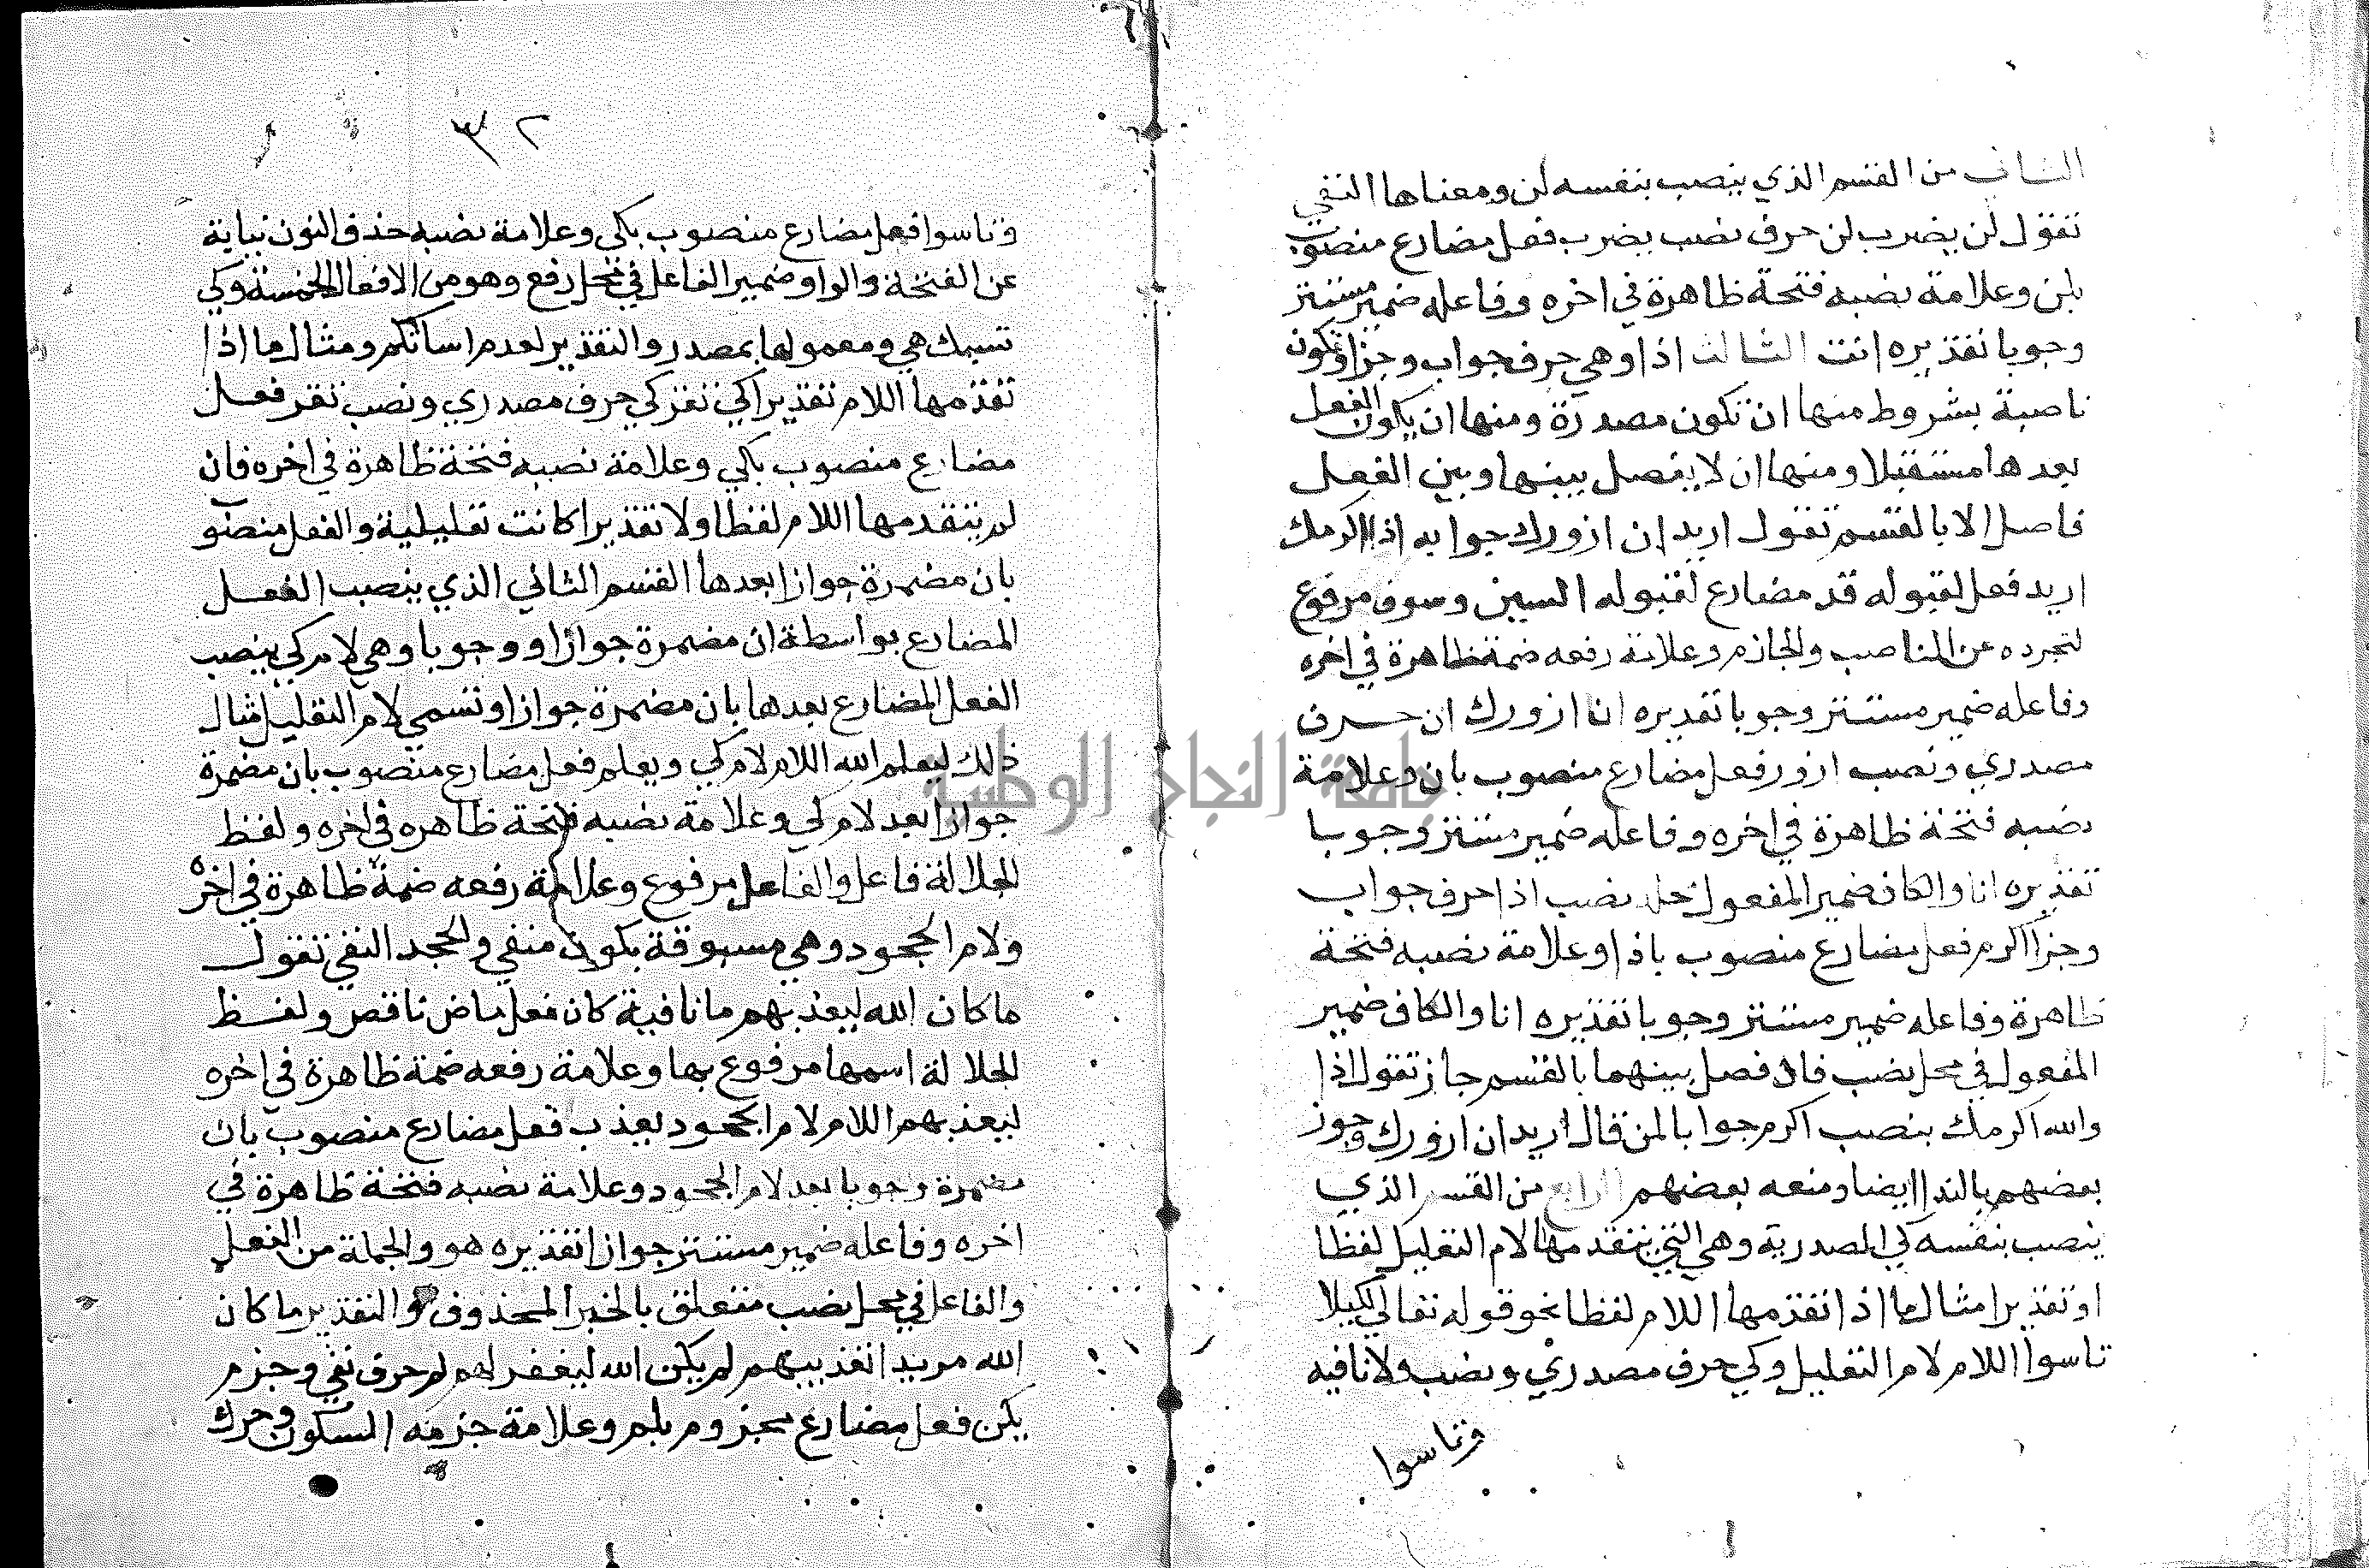 الثاني من القسم الذي ينصب بنفسه لن ومعناها النفي
تقول لن يضرب لن حرف نصب يضرب فعل مضارع منصوب
بلن وعلامة نصبه فتحة ظاهرة في اخره وفاعله ضمير مستتر
وجوبا تقديره انت الثالث اذا وهي حرف جواب وجزا وتكون
ناصبة بشروط منها ان تكون مصدرة ومنها ان يكون الفعل
بعدها مستقبلا ومنها ان لا يفصل بينها وبين الفعل
فاصل الا بالقسم تقول اريد ان ازورك جوابه اذا اكرمك
اريد فعل لقبوله قد مضارع لقبوله السين وسوف مرفوع
لتجرده عن الناصب والجازم وعلامة رفعه ضمة ظاهرة في اخره
وفاعله ضمير مستتر وجوبا تقديره انا ازورك ان حرف
مصدري ونصب ازور فعل مضارع منصوب بان وعلامة
نصبه فتحة ظاهرة في اخره وفاعله ضمير مستتر وجوبا
تقديره انا والكاف ضمير المفعول محل نصب اذا حرف جواب
وجزا اكرم فعل مضارع منصوب باذا وعلامة نصبه فتحة
ظاهرة وفاعله ضمير مستتر وجوبا تقديره انا والكاف ضمير
المفعول في محل نصب فان فصل بينهما بالقسم جاز تقول اذا
والله اكرمك بنصب اكرم جوابا لمن قال اريد ان ازورك وجوز
بعضهم بالندا ايضا ومنعه بعضهم الرابع من القسم الذي
ينصب بنفسه كي المصدرية وهي التي يتقدمها لام التعليل لفظا
او تقديرا مثال ما اذا تقدمها اللام لفظا نحو قوله تعالى لكيلا
تاسوا اللام لام التعليل وكي حرف مصدري ونصب ولا نافيه
وتاسوا
٣٢
وتاسوا فعل مضارع منصوب بكي وعلامة نصبه حذف النون نيابة
عن الفتحة والواو ضمير الفاعل في محل رفع وهو من الافعال الخمسة وكي
تسبك هي ومعمولها بمصدر والتقدير لعدم اساتكم ومثال ما اذا
تقدمها اللام تقديرا كي تقر كي حرف مصدري ونصب تقر فعل
مضارع منصوب بكي وعلامة نصبه فتحة ظاهرة في اخره فان
لم يتقدمها اللام لفظا ولا تقديرا كانت تعليلية والفعل منصوب
بان مضمرة جوازا بعدها القسم الثاني الذي ينصب الفعل
المضارع بواسطة ان مضمرة جوازا ووجوبا وهي لام كي ينصب
الفعل المضارع بعدها بان مضمرة جوازا وتسمى لام التعليل مثال
ذلك ليعلم الله اللام لام كي ويعلم فعل مضارع منصوب بان مضمرة
جوازا بعد لام كي وعلامة نصبه فتحة ظاهره في اخره ولفظ
الجلالة فاعل والفاعل مرفوع وعلامة رفعه ضمة ظاهرة في اخره
ولام الجحود وهي مسبوقة بكون منفي والجحد النفي تقول
ما كان الله ليعذبهم ما نافية كان فعل ماض ناقص ولفظ
الجلالة اسمها مرفوع بها وعلامة رفعه ضمة ظاهرة في اخره
ليعذبهم اللام لام الجحود يعذب فعل مضارع منصوب بان
مضمرة وجوبا بعد لام الجحود وعلامة نصبه فتحة ظاهرة في
اخره وفاعله ضمير مستتر جوازا تقديره هو والجملة من الفعل
والفاعل في محل نصب متعلق بالخبر المحذوف والتقدير ما كان
الله مريدا تعذيبهم لم يكن الله ليغفر لهم لم حرف نفي وجزم
يكن فعل مضارع مجزوم بلم وعلامة جزمه السكون وحرك
جامعة النجاح الوطنية